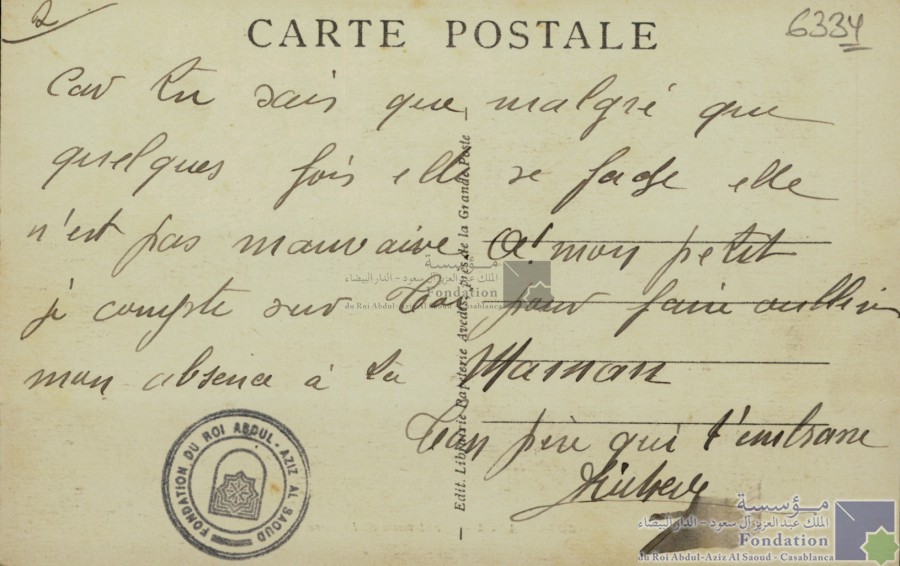 2
6334
CARTE POSTALE
Car tu sais que malgré que
quelques fois elle se fache elle
n'est pas mauvaise. A! mon petit
je compte sur toi pour faire oublier
mon absence à ta Maman
Ton père qui t'embrasse
Edit. Librairie Papeterie près de la Grande Poste
FONDATION DU ROI ABDUL-AZIZ AL SAOUD
مؤسسة
الملك عبد العزيز آل سعود - الدار البيضاء
Fondation
du Roi Abdul-Aziz Al Saoud - Casablanca
مؤسسة
الملك عبد العزيز آل سعود - الدار البيضاء
Fondation
du Roi Abdul-Aziz Al Saoud - Casablanca